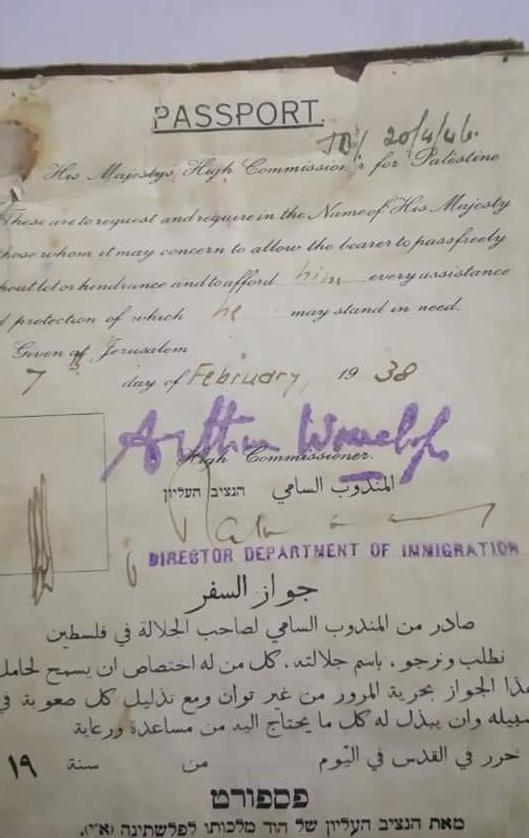 PASSPORT.
20/4/46.
His Majesty's High Commissioner for Palestine
These are to request and require in the Name of His Majesty
those whom it may concern to allow the bearer to pass freely
hout let or hindrance and to afford him every assistance
d protection of which he may stand in need.
Given at Jerusalem
7 day of February, 19 38
Arthur Wauchope
High Commissioner.
הנציב העליון المندوب السامي
DIRECTOR DEPARTMENT OF IMMIGRATION
جواز السفر
صادر من المندوب السامي لصاحب الجلالة في فلسطين
نطلب ونرجو، باسم جلالته، كل من له اختصاص ان يسمح لحامل
هذا الجواز بحرية المرور من غير توان ومع تذليل كل صعوبة في
سبيله وان يبذل له كل ما يحتاج اليه من مساعدة ورعاية
حرر في القدس في اليوم من سنة ١٩
פספורט
מאת הנציב העליון של הוד מלכותו לפלשתינה (א״י).